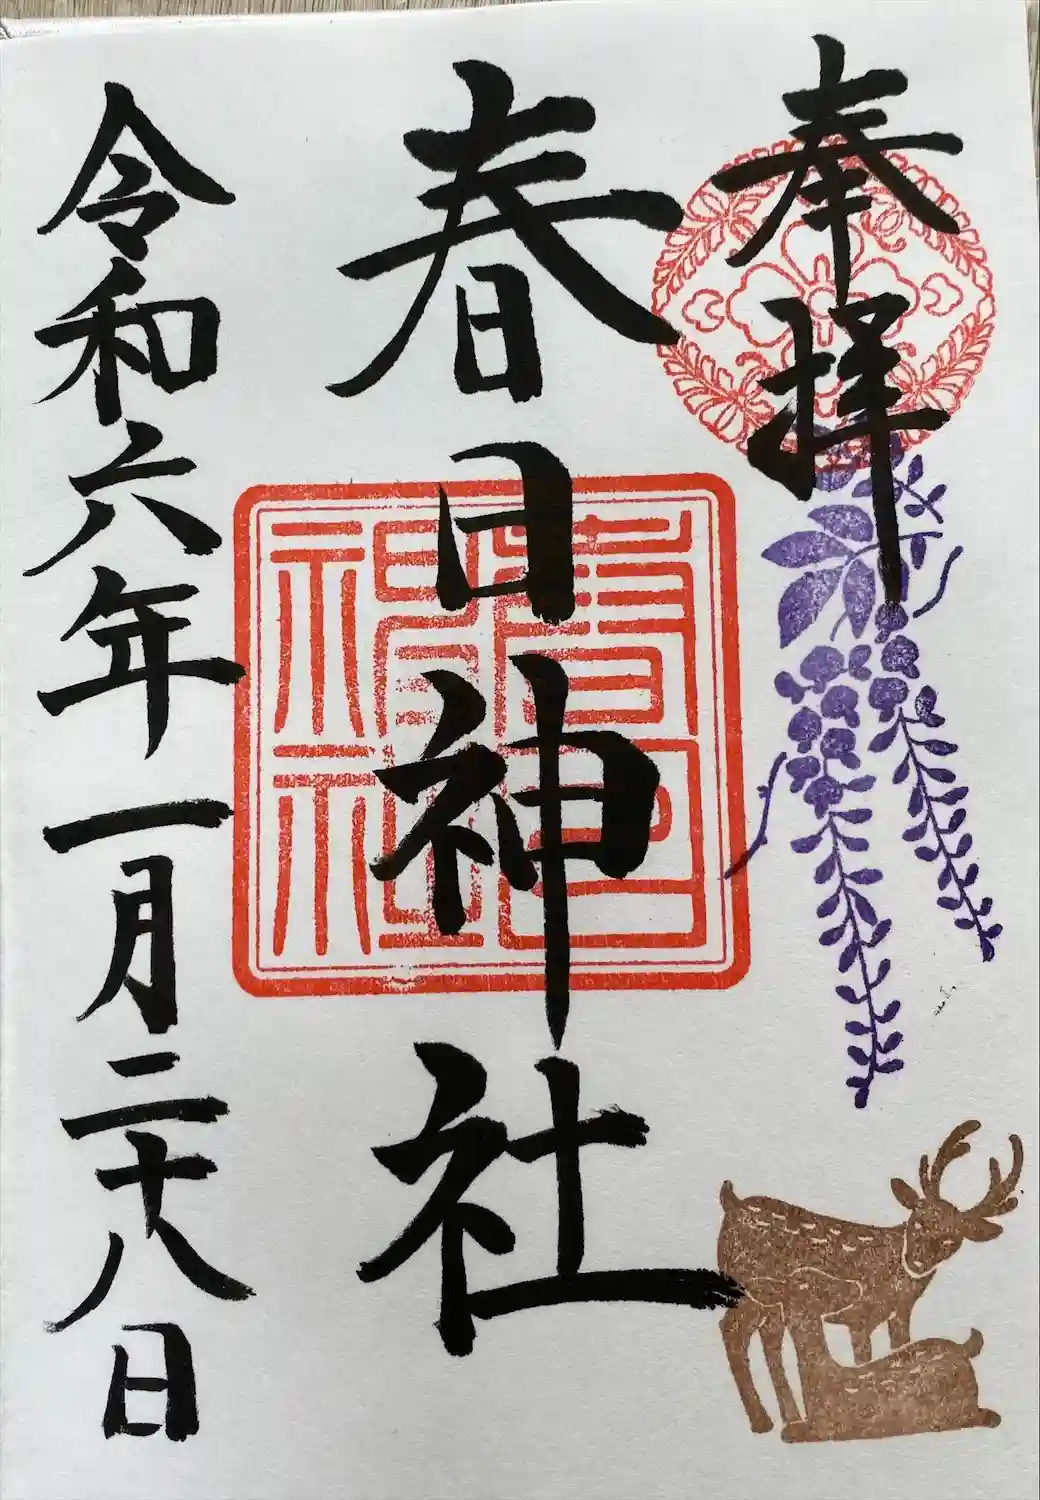 奉拝
春日神社
春日神社
令和六年一月二十八日